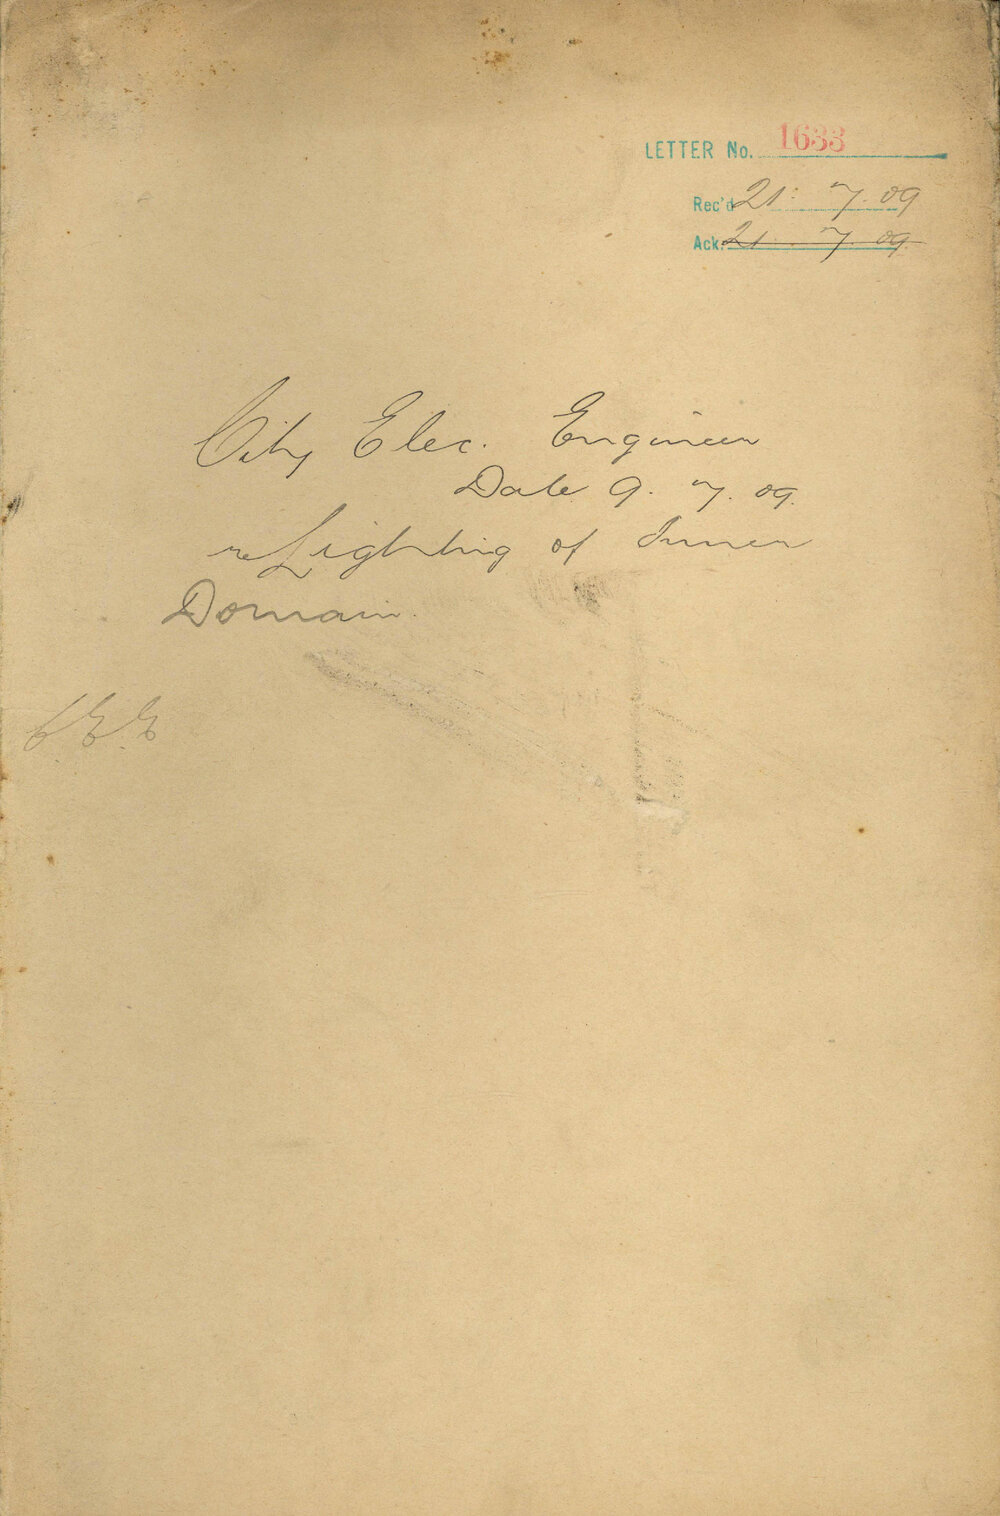 LETTER No. 1633
Rec'd 21. 7. 09
Ack. 21. 7. 09.
City Elec. Engineer
Date 9. 7. 09.
re Lighting of Inner
Domain.
CEE